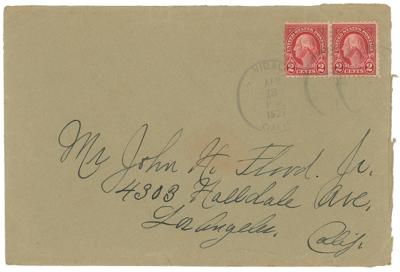 UNITED STATES POSTAGE UNITED STATES POSTAGE
2 CENTS 2 2 CENTS 2
VIDAL
CALIF
Mr John H. Flood. Jr.
4303 Halldale Ave,
Los Angeles,
Calif.